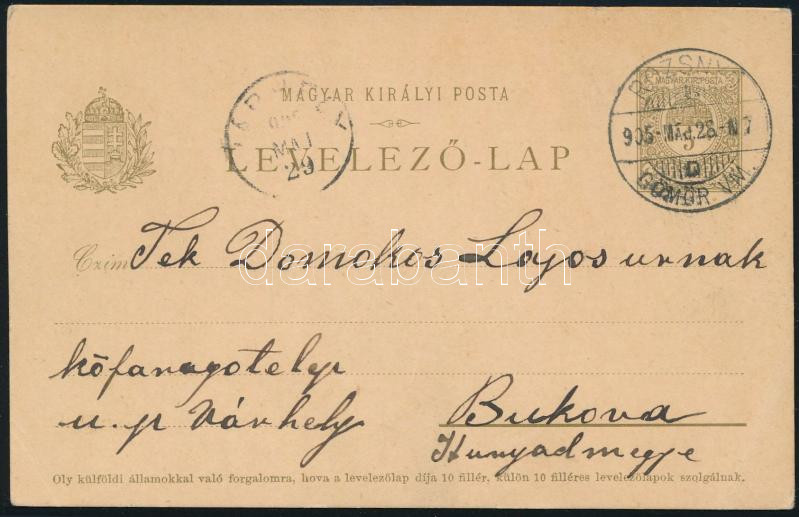 MAGYAR KIRÁLYI POSTA
LEVELEZŐ-LAP
MAGYAR KIR. POSTA
5
ROZSNY
905 MÁJ. 28. N 7
D
GÖMÖR VM.
VÁRHELY
905
MÁJ
29
Czim Tek Domokos Lajos urnak
darabanth.com
kőfaragotelep
u. p Várhely
Bukova
Hunyadmegye
Oly külföldi államokkal való forgalomra, hova a levelezőlap díja 10 fillér, külön 10 filléres levelezőlapok szolgálnak.